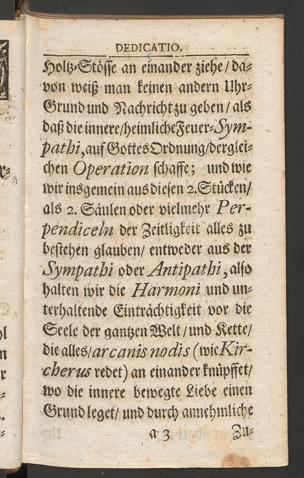 DEDICATIO.
Holtz-Stösse an einander ziehe/da-
von weiß man keinen andern Uhr-
Grund und Nachricht zu geben/als
daß die innere/heimliche Feuer-Sym-
pathi, auf Gottes Ordnung/derglei-
chen Operation schaffe; und wie
wir ins gemein aus diesen 2. Stücken/
als 2. Säulen oder vielmehr Per-
pendiceln der Zeitligkeit alles zu
bestehen glauben/ entweder aus der
Sympathi oder Antipathi, also
halten wir die Harmoni und un-
terhaltende Einträchtigkeit vor die
Seele der gantzen Welt/und Kette/
die alles/arcanis nodis (wie Kir-
cherus redet) an einander knüpffet/
wo die innere bewegte Liebe einen
Grund leget/und durch annehmliche
a 3 Zu-